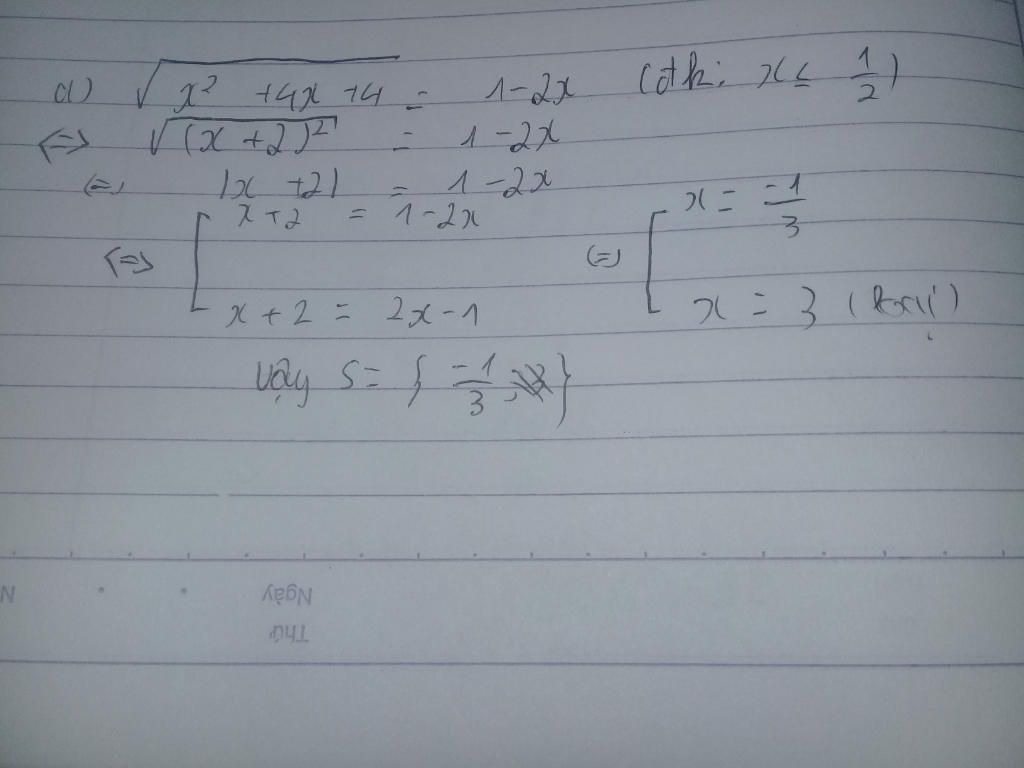 a) √(x² +4x +4) = 1-2x (đk: x ≤ 1/2)
<=> √((x+2)²) = 1-2x
(=) |x +2| = 1-2x
<=> [ x+2 = 1-2x (=) [ x = -1/3
x+2 = 2x-1 x = 3 (loại)
Vậy S= { -1/3 }
Ngày
Thứ
N